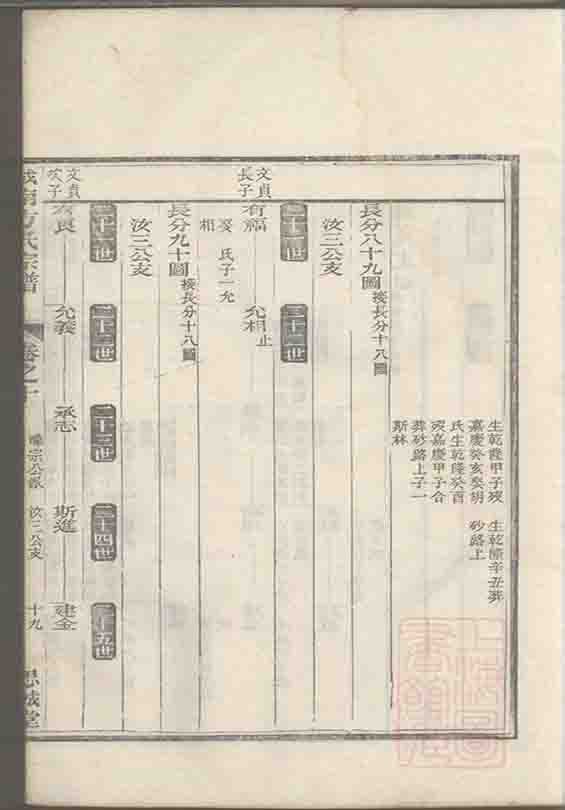 生乾隆甲子歿
嘉慶癸亥娶胡
氏生乾隆癸酉
歿嘉慶甲子合
葬砂路上子一
斯林
生乾隆辛丑葬
砂路上
長分八十九圖 接長分十八圖
汝三公支
二十一世 二十二世
文貞
長子
有福 允相 止
娶 氏子一允
相
長分九十圖 接長分十八圖
汝三公支
二十一世 二十二世 二十三世 二十四世 二十五世
文貞
次子
有良 允義 承志 斯進 建金
城南方氏宗譜 卷之十 宗公派 汝三公支 十九 思誠堂
上海圖
書館藏